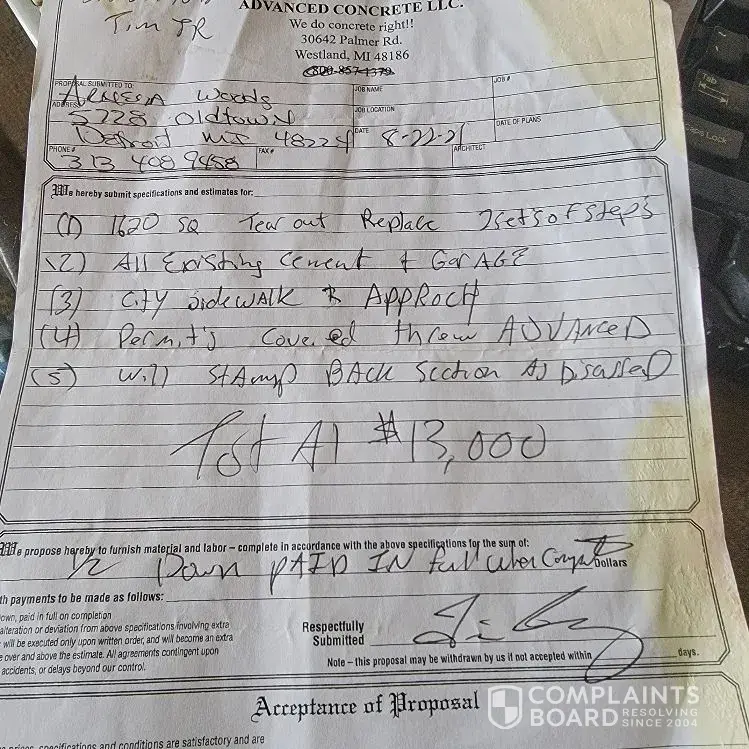 ADVANCED CONCRETE LLC.
Tim JR
We do concrete right!!
30642 Palmer Rd.
Westland, MI 48186
800-857-1379
PROPOSAL SUBMITTED TO: Woods
JOB NAME
JOB #
ADDRESS 5728 Oldtown
JOB LOCATION
Detroit MI 48224
DATE 8-22-21
DATE OF PLANS
PHONE # 313 408 9458
FAX #
ARCHITECT
We hereby submit specifications and estimates for:
(1) 1620 SQ Tear out Replace 2set's of step's
(2) All Existing Cement & GarAGE
(3) City SidewAlk & APPROCH
(4) Permit's Covered threw ADVANCED
(5) will StAmp BAck Section AS DiscussED
TotAl $13,000
We propose hereby to furnish material and labor – complete in accordance with the above specifications for the sum of:
1/2 Down PAID IN full when
Dollars
th payments to be made as follows:
own, paid in full on completion
alteration or deviation from above specifications involving extra
will be executed only upon written order, and will become an extra
e over and above the estimate. All agreements contingent upon
accidents, or delays beyond our control.
Respectfully
Submitted
Note – this proposal may be withdrawn by us if not accepted within days.
Acceptance of Proposal
prices, specifications and conditions are satisfactory and are
COMPLAINTS
BOARD RESOLVING SINCE 2004
Tab
Caps Lock